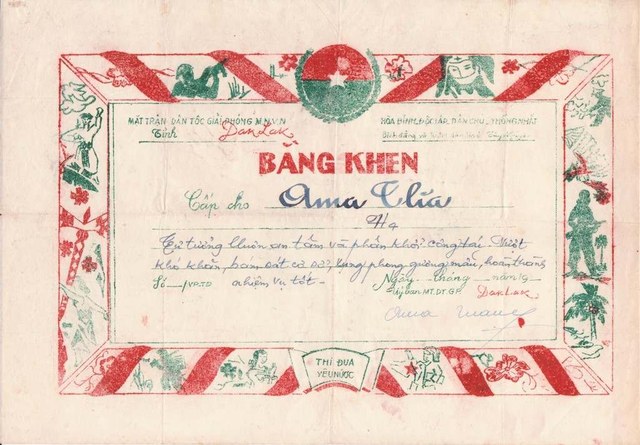 MẶT TRẬN DÂN TỘC GIẢI PHÓNG M.N.V.N
Tỉnh DakLak
HÒA BÌNH, ĐỘC LẬP, DÂN CHỦ, THỐNG NHẤT
BẰNG KHEN
Cấp cho Ama Thĩa
Tư tưởng luôn an tâm và phấn khởi công tác. Vượt
khó khăn, bám đất cơ sở, tung phong gương mẫu, hoàn thành
Số /VP.TD nhiệm vụ tốt -
Ngày tháng năm 19
Ủy ban MT.DT.GP. DakLak
ama
THI ĐUA
YÊU NƯỚC